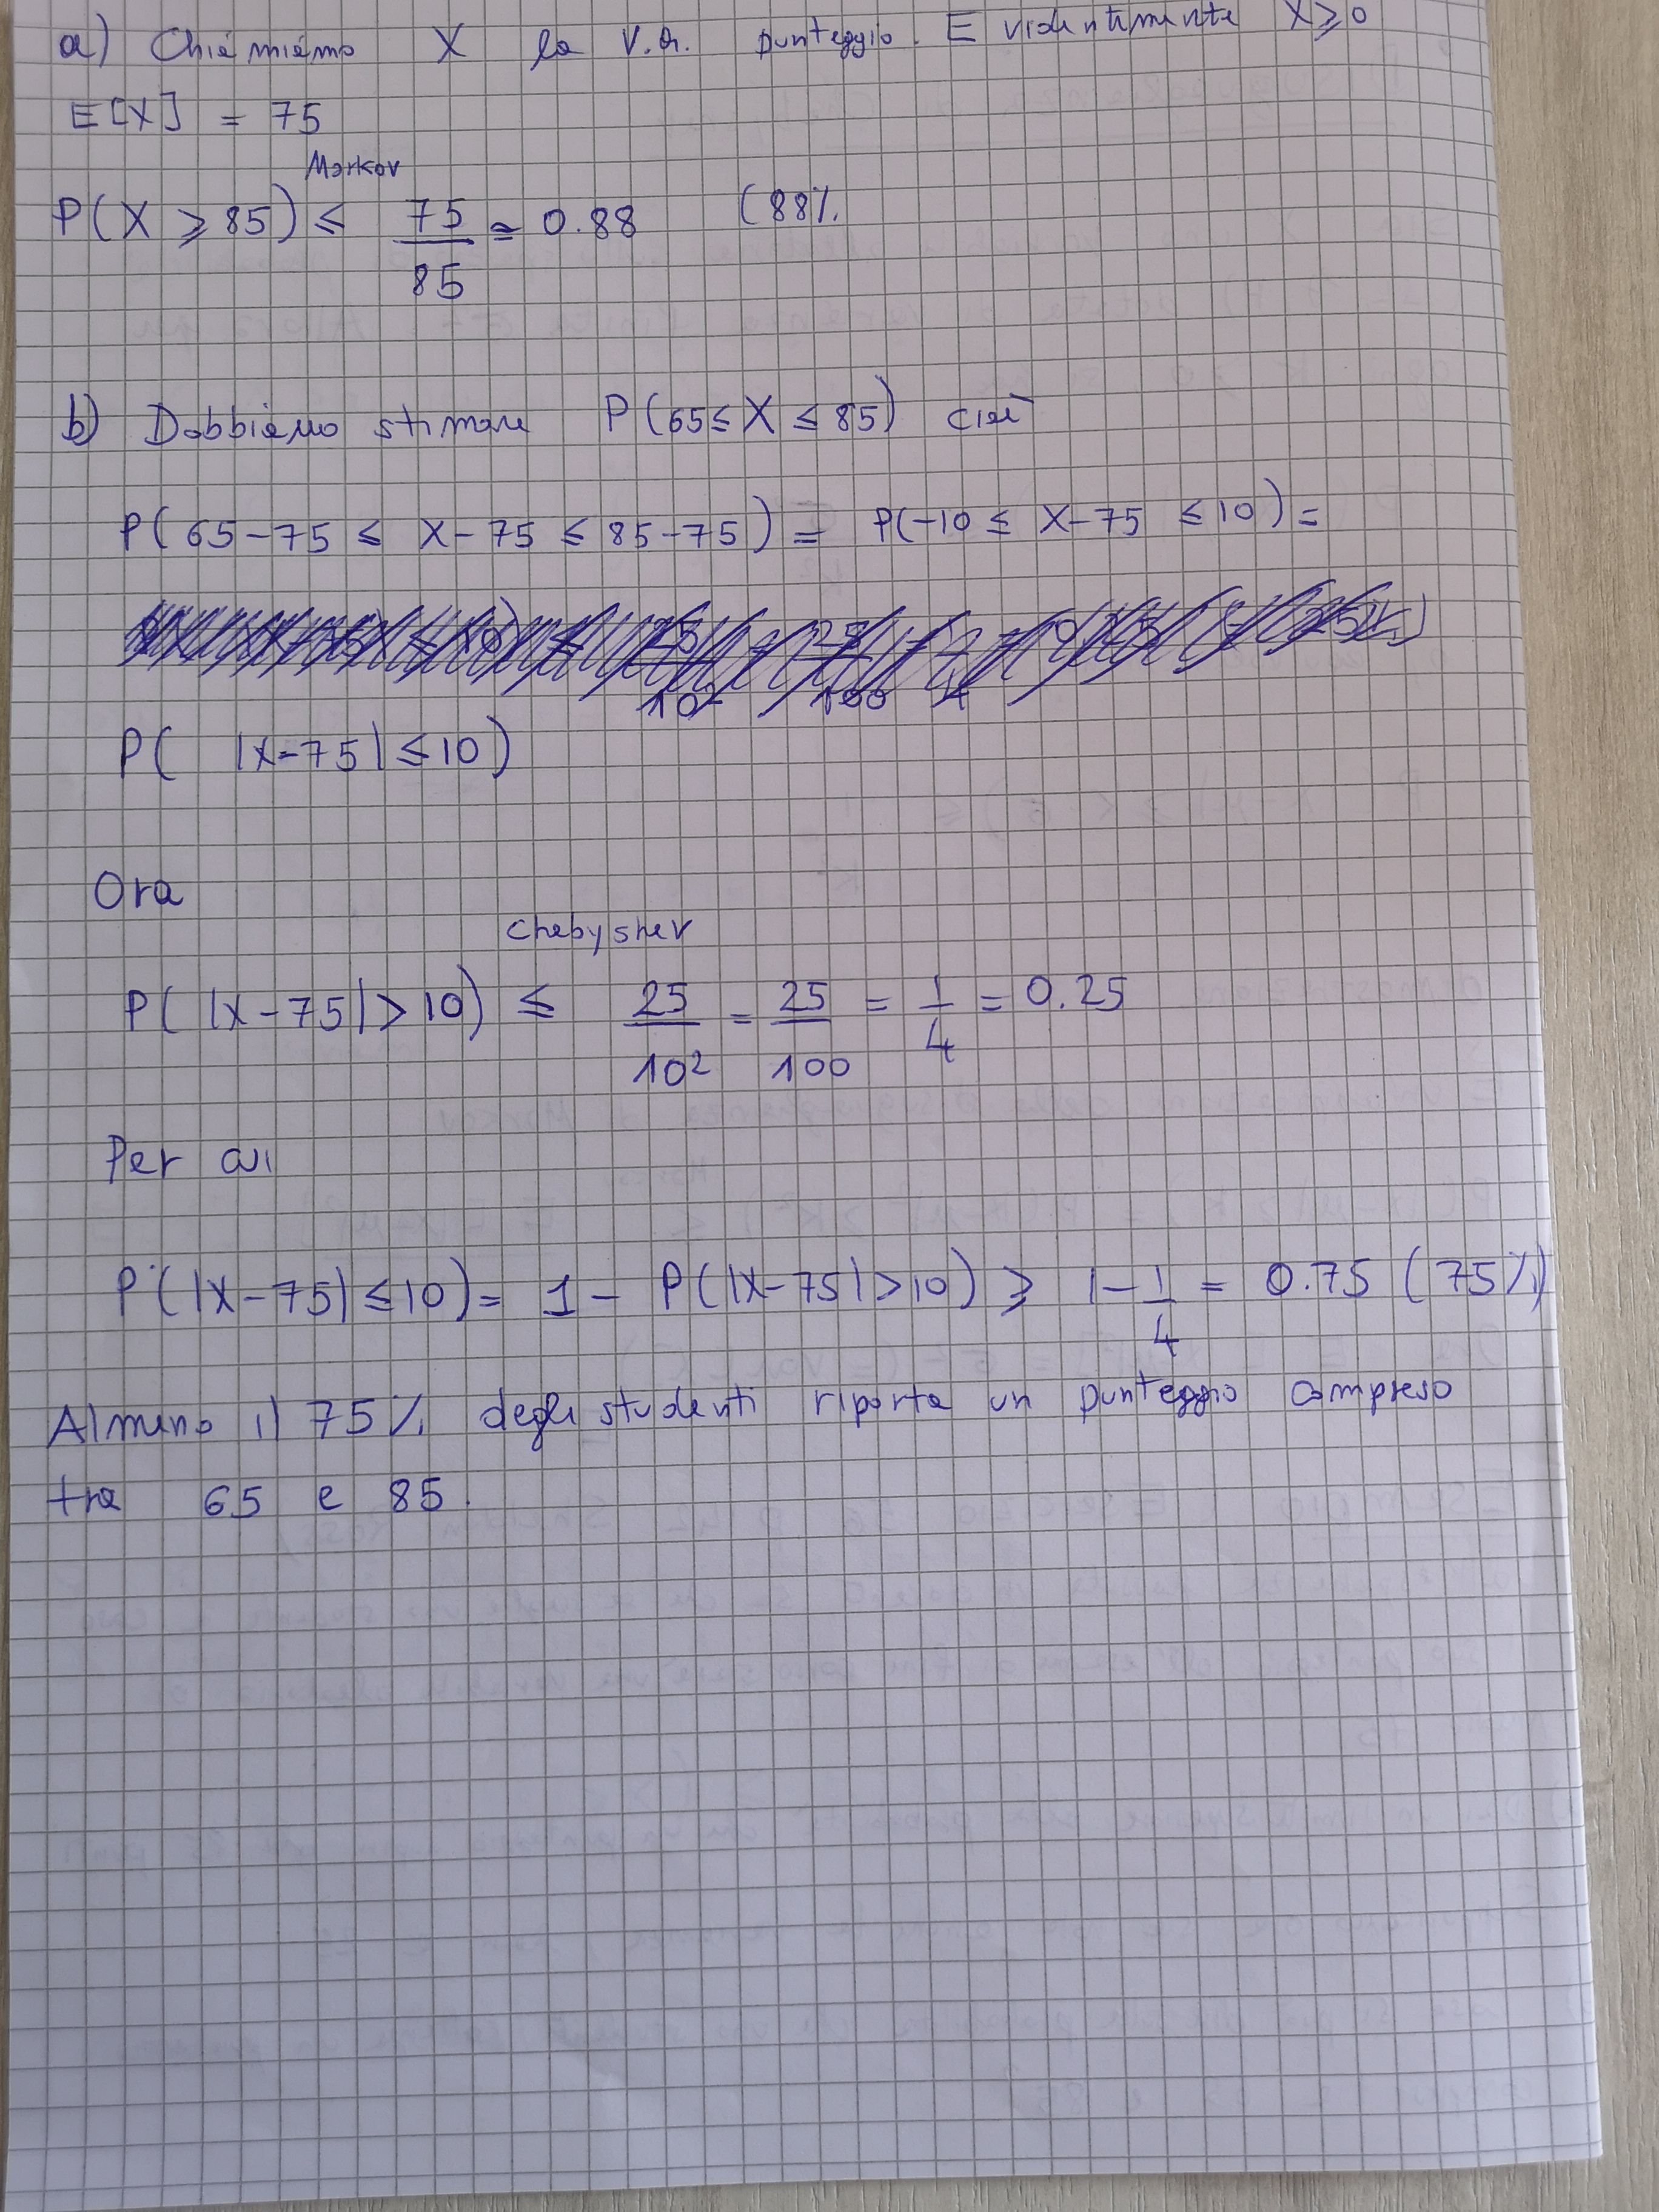 a) Chiamiamo X la v.a. punteggio. Evidentemente X ⩾ 0
E[X] = 75
Markov
P(X ⩾ 85) ≤ 75/85 ≃ 0.88 (88%
b) Dobbiamo stimare P(65 ≤ X ≤ 85) cioè
P(65-75 ≤ X-75 ≤ 85-75) = P(-10 ≤ X-75 ≤ 10) =
P( |X-75| ≤ 10)
Ora
Chebyshev
P( |X-75| > 10) ≤ 25/10² = 25/100 = 1/4 = 0.25
Per cui
P(|X-75| ≤ 10) = 1 - P(|X-75| > 10) ⩾ 1 - 1/4 = 0.75 (75%)
Almeno il 75% degli studenti riporta un punteggio compreso
tra 65 e 85.